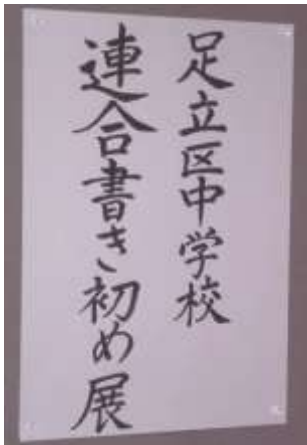 足立区中学校
連合書き初め展